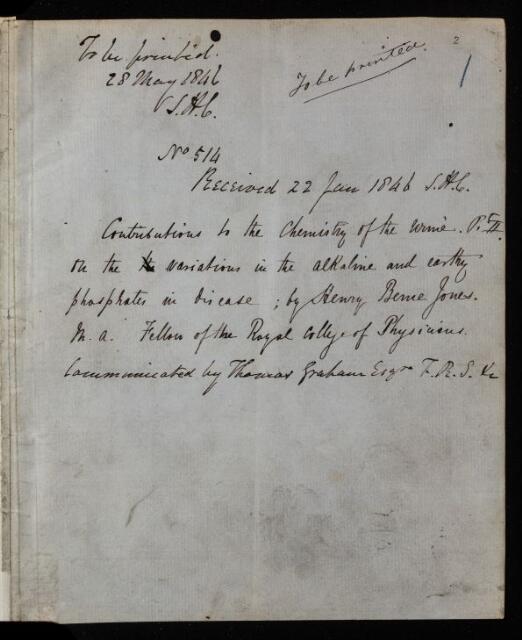 To be printed.
28 May 1846
S.H.C.
To be printed.
2
1
No 514
Received 22 Jan 1846 S.H.C.
Contributions to the Chemistry of the urine. Pt. II.
on the variations in the alkaline and earthy
phosphates in disease; by Henry Bence Jones.
M.A. Fellow of the Royal College of Physicians.
Communicated by Thomas Graham Esqre F.R.S. &c